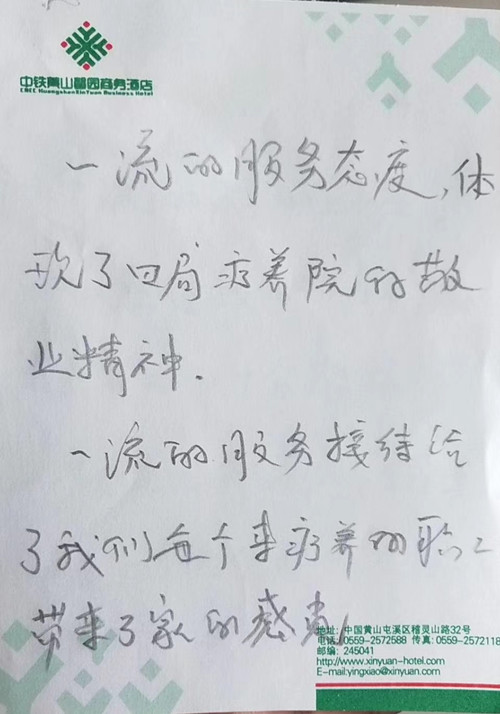 中铁黄山馨园商务酒店
CREC HuangshanXinYuan Business Hotel
一流的服务态度,体
现了四局疗养院的敬
业精神.
一流的服务接待给
了我们每个来疗养的职工
带来了家的感觉
地址: 中国黄山屯溪区稽灵山路32号
电话: 0559-2572588 传真: 0559-2572118
邮编: 245041
http://www.xinyuan-hotel.com
E-mail:yingxiao@xinyuan-hotel.com